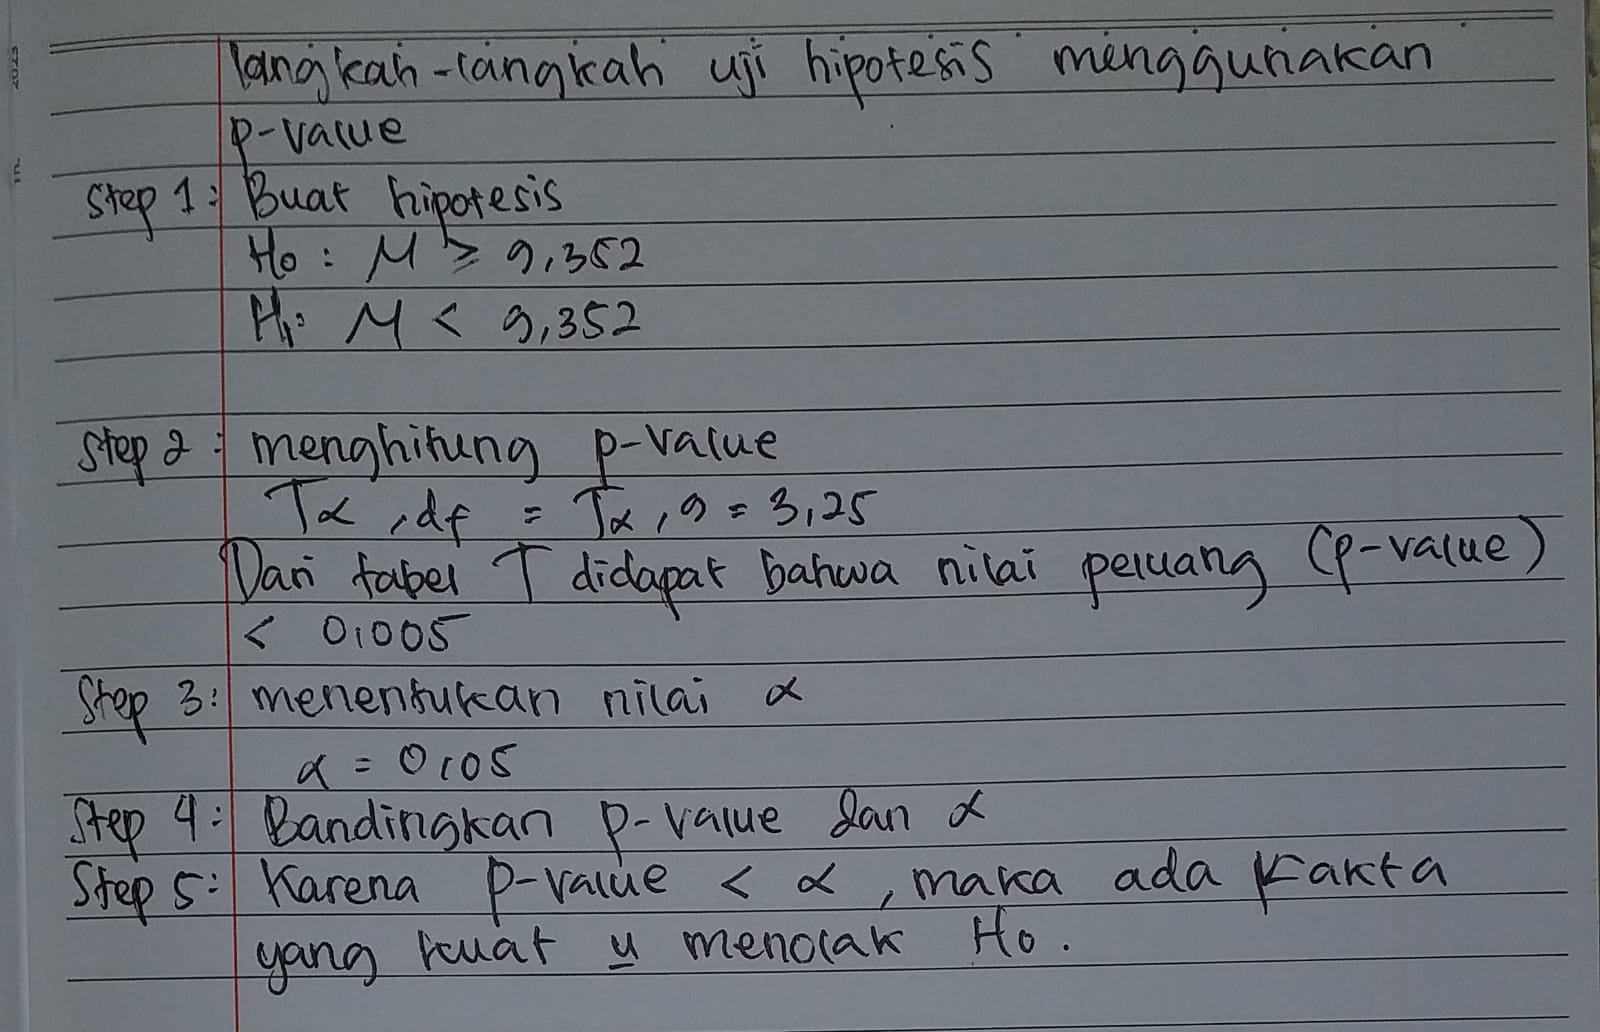 langkah-langkah uji hipotesis menggunakan
p-value
Step 1: Buat hipotesis
Ho : M ≥ 9,352
H1: M < 9,352
Step 2: menghitung p-value
Tα, df = Tα, 9 = 3,25
Dari tabel T didapat bahwa nilai peluang (p-value)
< 0,005
Step 3: menentukan nilai α
α = 0,05
Step 4: Bandingkan p-value dan α
Step 5: Karena p-value < α, maka ada Fakta
yang kuat u menolak Ho.